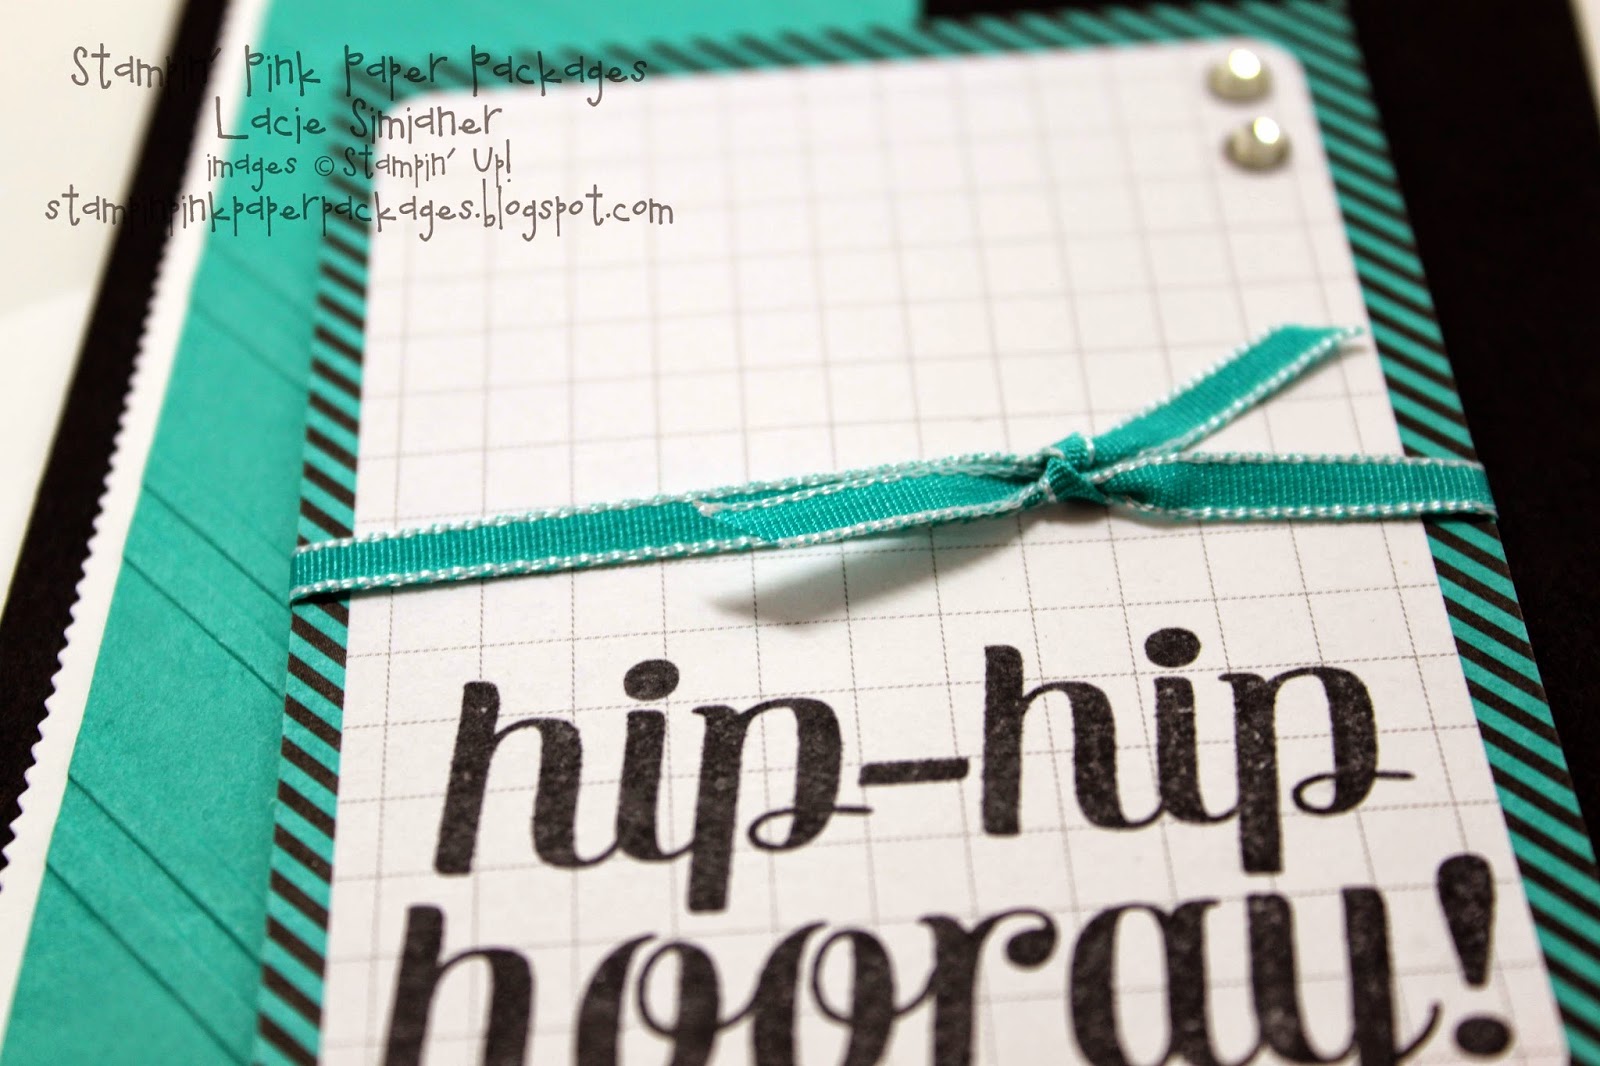 Stampin' Pink Paper Packages
Lacie Simianer
images © Stampin' Up!
stampinpinkpaperpackages.blogspot.com
hip-hip
hooray!